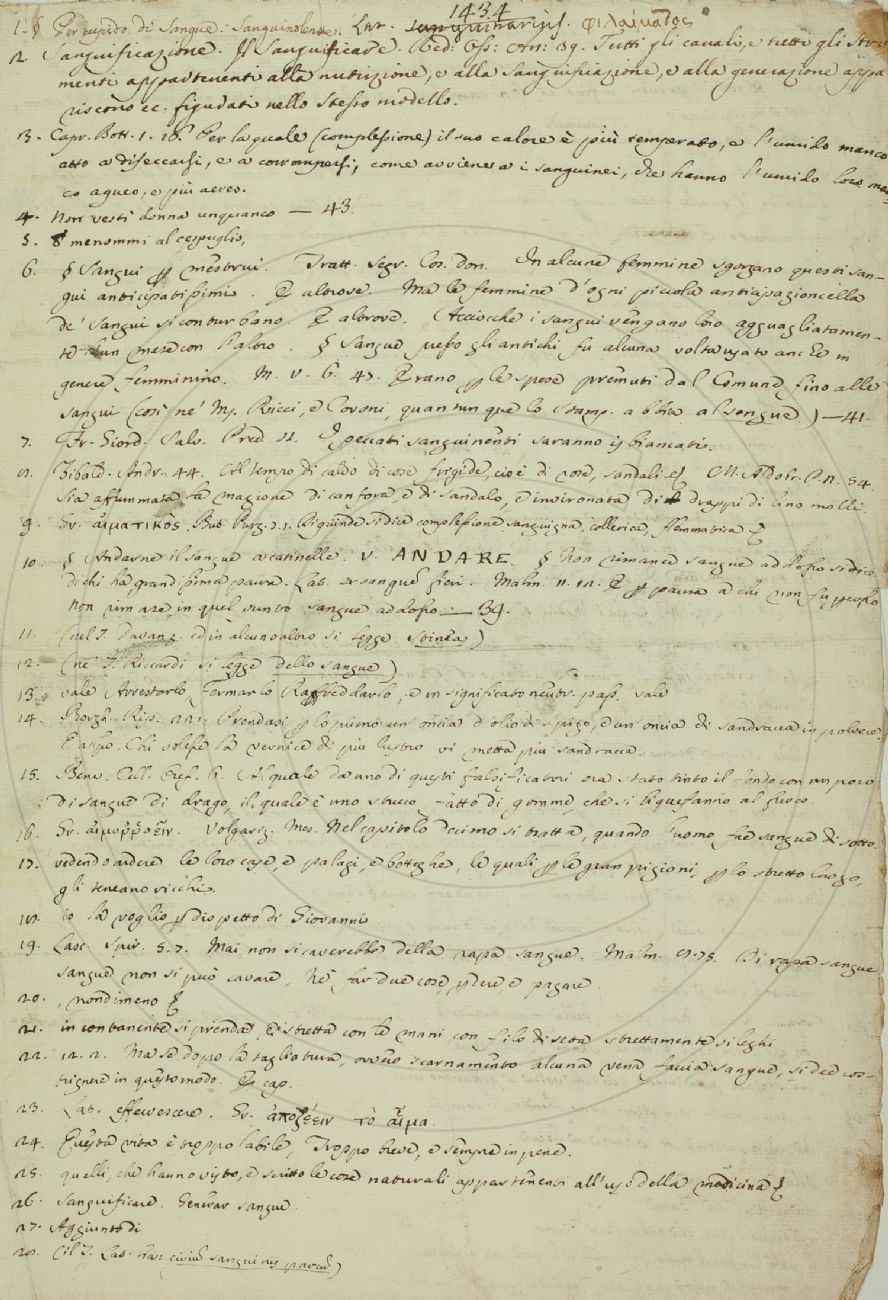 1434
1. § Per cupido di Sangue. Sanguinolente. Lat. sanguinarius. φιλαίματος
2. Sanguificazione. Il Sanguificare. Red. Oss: An: 39. Tutti gli canali, e tutti gli Stru
menti appartenenti alla nutrizione, e alla Sanguificazione, e alla generazione appa
riscono ec. figurati nello stesso modello.
3. Capr. Bott. 1. 18. Per la quale (complessione) il suo calore è più temperato, e l'umido manco
atto a diseccarsi, e a corrompersi, come avviene a i sanguinei, che hanno l'umido loro man
co aqueo, e più aereo.
4. Non vesti donna unquanco — 43.
5. menommi al cespuglio,
6. § Sangui mestrui. Tratt. segr. cos. don. In alcune femmine sgorgano questi san-
gui anticipatissimi. E altrove. Ma le femmine d'ogni piccola anticipazioncella
de' sangui si conturbano. E altrove. Acciocchè i sangui vengano loro agguagliatamen-
te un mese con l'altro. § Sangue presso gli antichi fu alcuna volta usato anche in
genere femminino. M. V. 6. 47. Erano le spese premuti dal Comune fino alle
sangui (così ne' Mss. Ricci, e Covoni, quantunque lo stamp. abbia al sangue) — 41.
7. Fr. Giord. Salv. Pred. 11. I peccati sanguinenti saranno isbiancati.
8. Tibald. Andr. 44. Al tempo di caldo di cose frigide, cioè di rose, sandali M. Aldobr. P. N. 54
Sia affummata la magione di canfora, e di sandalo, e invironata di drappi di lino molli
9. Gr. αἱματικὸς. But. Purg. 7. 1. Riguinde si dice complessione sanguigna, collerica, flemmatica
10. § Andarne il sangue a catinelle. V. ANDARE. § Non rimaner sangue addosso si dice
di chi ha grandissima paura. Lat. exsanguem fieri. Malm. 11. 12. E paura a chi non fu percosso
Non rimase in quel punto sangue addosso — 39.
11. (nel T. Davanz. ed in alcuno altro si legge )
12. (ne' T. Riccardi si legge dello sangue)
13. vale Arrestarlo, Fermarlo Raffreddarlo, e in significato neutr. pass. vale
14. Borgh. Rip. 221. Prendasi lo primo un'oncia d'olio di spigo, e un'oncia di sandraca in polvere.
E appo. Chi volesse la vernice di più lustro vi metta più sandraca.
15. Benv. Cell. Oref. 6. Al quale da uno di questi falsificatori era stato tinto il fondo con un poco
di sangue di drago, il quale è uno stucco fatto di gomme, che si liquefanno al fuoco
16. Gr. αἱμοῤῥοεῖν. Volgariz. Mes. Nel capitolo decimo si tratta, quando l'uomo fae sangue di sotto.
17. vedendo ardere le loro case, e palagi, e botteghe, le quali le gran pigioni, lo stretto luogo,
gli teneano ricchi.
18. io la voglio dispetto di Giovanni
19. Lasc. Spir. 5. 7. Mai non si caverebbe della rapa sangue. Malm. 8. 75. Di rapa sangue
sangue non si può cavare, Nè far due cose, perdere, e pagare.
20. , nondimeno
21. incontanente si prenda, e stretta con le mani con filo di seta strettamente si leghi
22. 12. 2. Ma se dopo la tagliatura, ovvero scarnamento alcuna vena faccia sangue, si dee cos-
trignere in questo modo. E cap.
23. Lat. effervescere. Gr. ἀποζέειν τὸ αἷμα.
24. Questa vita è troppo labile, Troppo breve, e sempre in pene.
25. quelli, che hanno visto, e scritto le cose naturali appartenenti all'uso della medicina
26. Sanguificare. Generar sangue.
27. Aggiunto di
28. (il T. Lat. ha: civium sanguinis parcus)